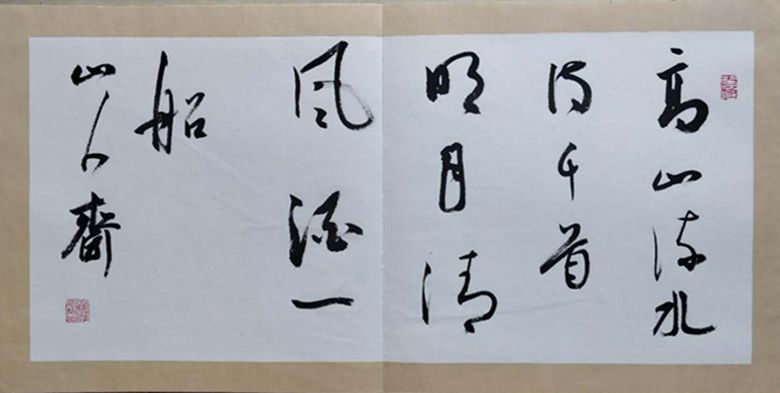 高山流水
诗千首
明月清
风酒一
船
山人斋